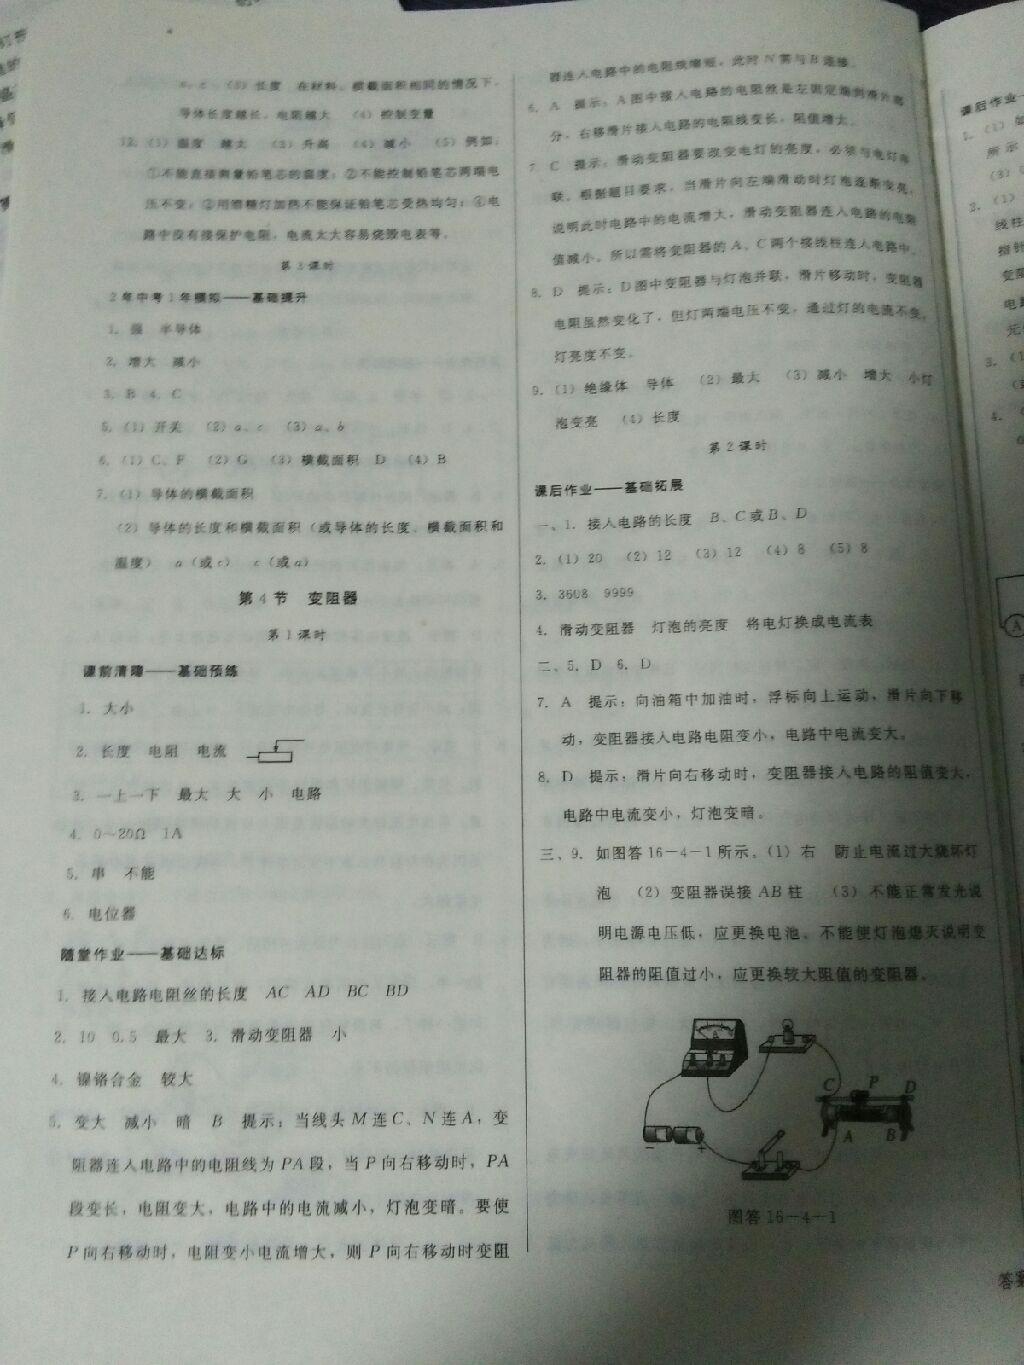 a、c （3）长度 在材料、横截面积相同的情况下，
导体长度越长，电阻越大 （4）控制变量
12.（1）温度 越大 （3）升高 （4）减小 （5）例如：
①不能直接测量铅笔芯的温度；②不能控制铅笔芯两端电
压不变；③用酒精灯加热不能保证铅笔芯受热均匀；④电
路中没有接保护电阻，电流太大容易烧毁电表等。
第3课时
2年中考1年模拟——基础提升
1. 强 半导体
2. 增大 减小
3. B 4. C
5.（1）开关 （2）a、c （3）a、b
6.（1）C、F （2）G （3）横截面积 D （4）B
7.（1）导体的横截面积
（2）导体的长度和横截面积（或导体的长度、横截面积和
温度） a（或c） c（或a）
第4节 变阻器
第1课时
课前清障——基础预练
1. 大小
2. 长度 电阻 电流
3. 一上一下 最大 大 小 电路
4. 0～20Ω 1A
5. 串 不能
6. 电位器
随堂作业——基础达标
1. 接入电路电阻丝的长度 AC AD BC BD
2. 10 0.5 最大 3. 滑动变阻器 小
4. 镍铬合金 较大
5. 变大 减小 暗 B 提示：当线头M连C、N连A，变
阻器连入电路中的电阻线为PA段，当P向右移动时，PA
段变长，电阻变大，电路中的电流减小，灯泡变暗。要使
P向右移动时，电阻变小电流增大，则P向右移动时变阻
器连入电路中的电阻线缩短，此时N需与B连接。
6. A 提示：A图中接入电路的电阻丝是左固定端到滑片部
分，右移滑片接入电路的电阻线变长，阻值增大。
7. C 提示：滑动变阻器要改变电灯的亮度，必须与电灯串
联。根据题目要求，当滑片向左端滑动时灯泡逐渐变亮，
说明此时电路中的电流增大，滑动变阻器连入电路的电阻
值减小。所以需将变阻器的A、C两个接线柱连入电路中。
8. D 提示：D图中变阻器与灯泡并联，滑片移动时，变阻器
电阻虽然变化了，但灯两端电压不变，通过灯的电流不变，
灯亮度不变。
9.（1）绝缘体 导体 （2）最大 （3）减小 增大 小灯
泡变亮 （4）长度
第2课时
课后作业——基础拓展
一、1. 接入电路的长度 B、C或B、D
2.（1）20 （2）12 （3）12 （4）8 （5）8
3. 3608 9999
4. 滑动变阻器 灯泡的亮度 将电灯换成电流表
二、5. D 6. D
7. A 提示：向油箱中加油时，浮标向上运动，滑片向下移
动，变阻器接入电路电阻变小，电路中电流变大。
8. D 提示：滑片向右移动时，变阻器接入电路的阻值变大，
电路中电流变小，灯泡变暗。
三、9. 如图答16－4－1所示。（1）右 防止电流过大烧坏灯
泡 （2）变阻器误接AB柱 （3）不能正常发光说
明电源电压低，应更换电池。不能使灯泡熄灭说明变
阻器的阻值过小，应更换较大阻值的变阻器。
A
C P D
A B
－ ＋
图答16－4－1
课后作业
1.（1）如
所示
（3）（
2.（1）
线柱
指针
变阻
电路
元
3.（1
4.（
A
答案